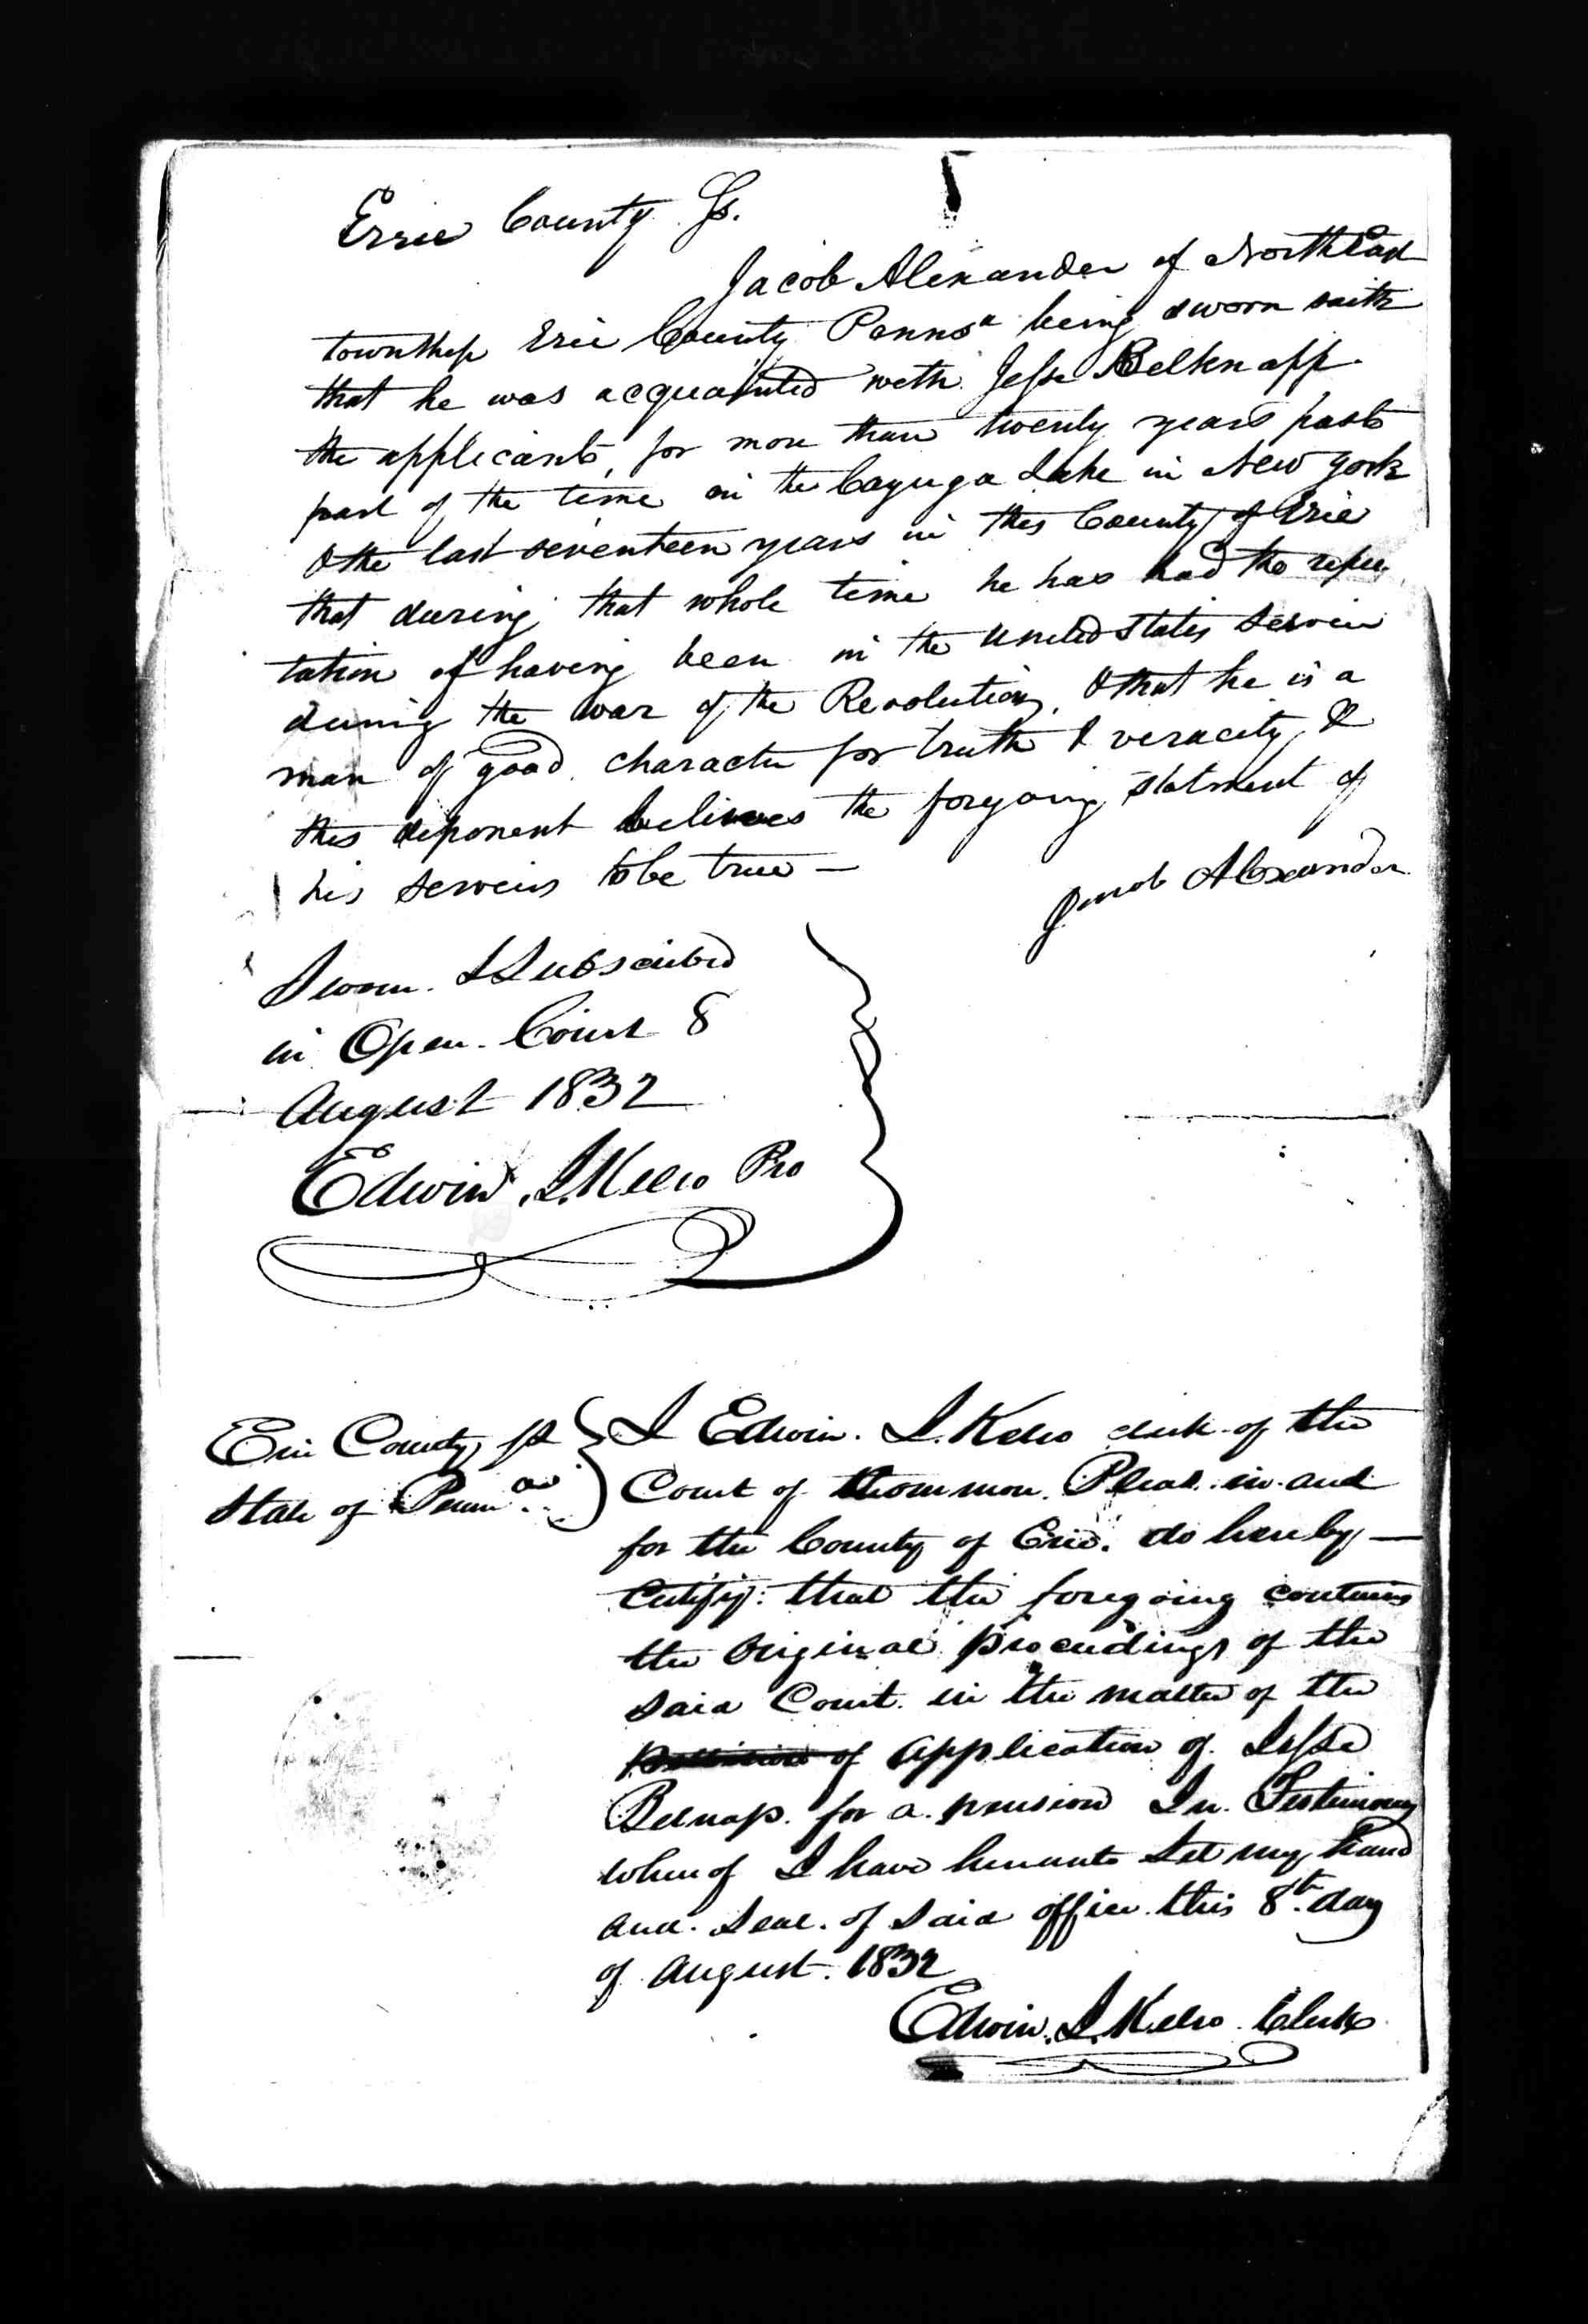 Erie County Ss.
Jacob Alexander of North East
township Erie County Pennsa being sworn saith
that he was acquainted with Jesse Belknapp
the applicant, for more than twenty years past
part of the time on the Cayuga Lake in New York
& the last seventeen years in this County of Erie
that during that whole time he has had the repu
tation of having been in the United States service
during the war of the Revolution, & that he is a
man of good character for truth & veracity, &
this deponent believes the foregoing statment of
his services to be true —
Jacob Alexander
Sworn & Subscribed
in Open Court 8
August 1832
Edwin J. Kelso Pro
Erie County ss
State of Penna
I Edwin J. Kelso clerk of the
Court of Common Pleas in and
for the County of Erie. do hereby —
Certify: that the foregoing contains
the Original proceedings of the
said Court in the matter of the
of application of Jesse
Belnap for a pension In Testimony
whereof I have hereunto Set my hand
and Seal of said office this 8th day
of August. 1832
Edwin J. Kelso Clerk